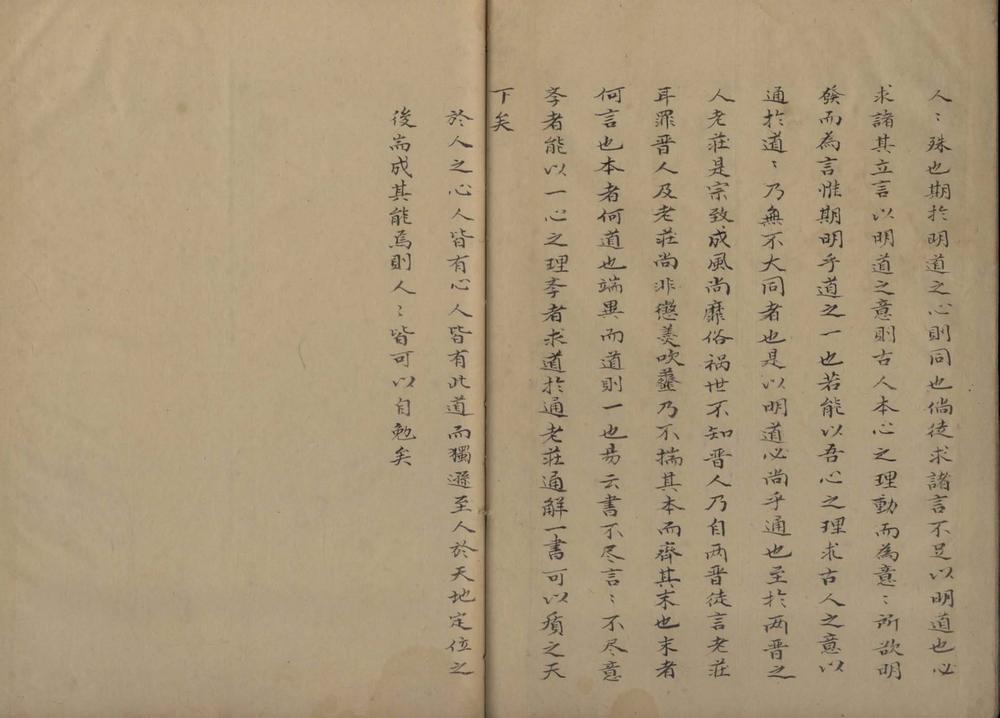 人〻殊也期於明道之心則同也倘徒求諸言不足以明道也必
求諸其立言以明道之意則古人本心之理動而為意〻所欲明
發而為言惟期明乎道之一也若能以吾心之理求古人之意以
通於道〻乃無不大同者也是以明道必尚乎通也至於两晋之
人老莊是宗致成風尚靡俗禍世不知晋人乃自两晋徒言老莊
耳罪晋人及老莊尚非懲羮吹虀乃不揣其本而齊其末也末者
何言也本者何道也端異而道則一也易云書不尽言〻不尽意
斈者能以一心之理斈者求道於通老莊通解一書可以質之天
下矣
於人之心人皆有心人皆有此道而獨遜至人於天地定位之
後耑成其能焉則人〻皆可以自勉矣